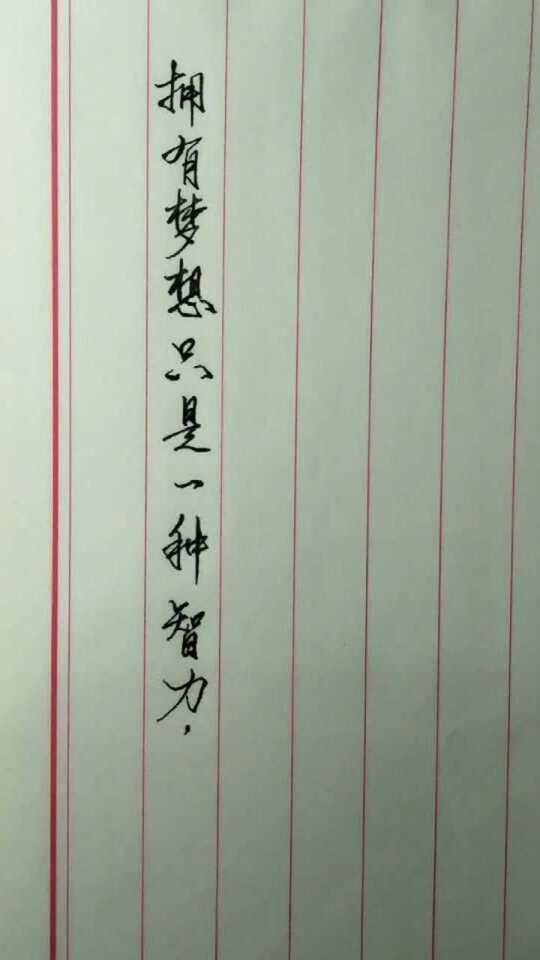 拥有梦想只是一种智力,